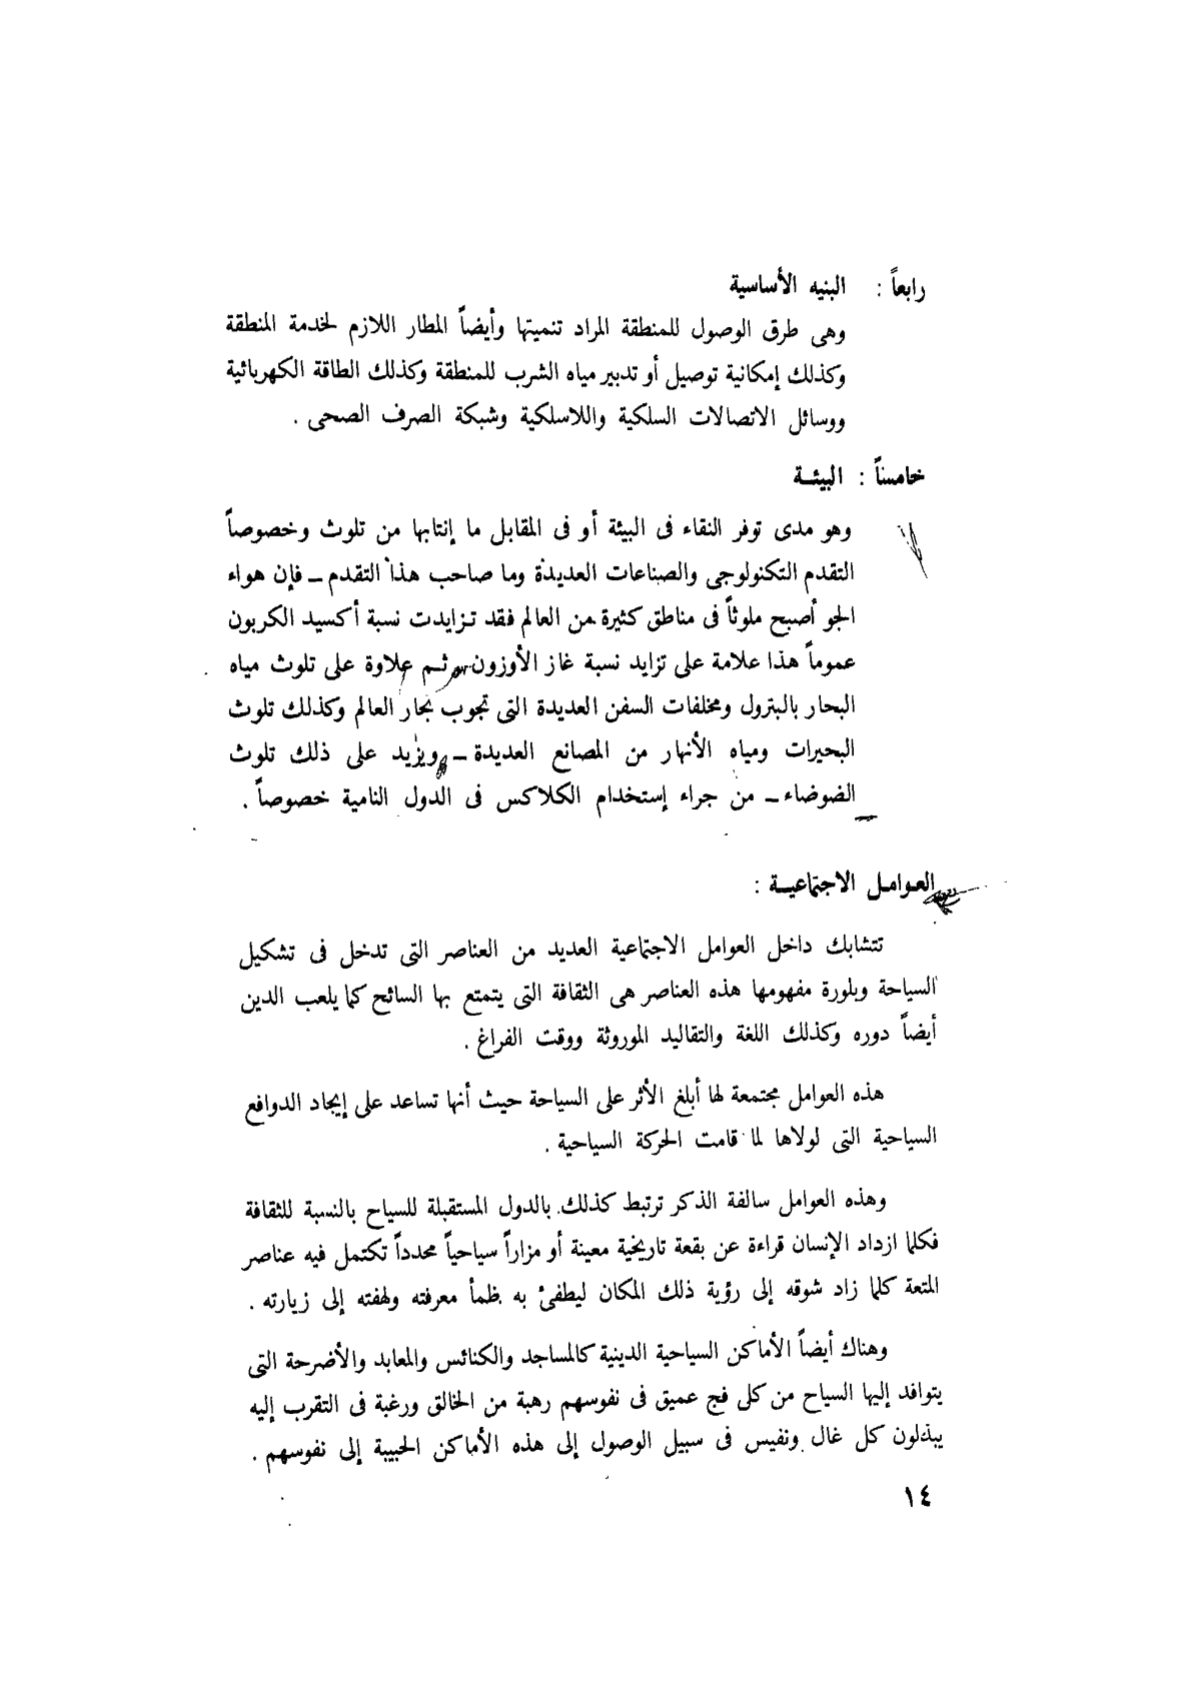 رابعاً : البنيه الأساسية
وهى طرق الوصول للمنطقة المراد تنميتها وأيضاً المطار اللازم لخدمة المنطقة
وكذلك إمكانية توصيل أو تدبير مياه الشرب للمنطقة وكذلك الطاقة الكهربائية
ووسائل الاتصالات السلكية واللاسلكية وشبكة الصرف الصحى .
خامساً : البيئـة
وهو مدى توفر النقاء فى البيئة أو فى المقابل ما إنتابها من تلوث وخصوصاً
التقدم التكنولوجى والصناعات العديدة وما صاحب هذا التقدم ــ فإن هواء
الجو أصبح ملوثاً فى مناطق كثيرة من العالم فقد تـزايدت نسبة أكسيد الكربون
عموماً هذا علامة على تزايد نسبة غاز الأوزون ثـم علاوة على تلوث مياه
البحار بالبترول ومخلفات السفن العديدة التى تجوب بحار العالم وكذلك تلوث
البحيرات ومياه الأنهار من المصانع العديدة ــ ويزيد على ذلك تلوث
الضوضاء ــ من جراء إستخدام الكلاكس فى الدول النامية خصوصاً .
العوامـل الاجتماعيـة :
تتشابك داخل العوامل الاجتماعية العديد من العناصر التى تدخل فى تشكيل
السياحة وبلورة مفهومها هذه العناصر هى الثقافة التى يتمتع بها السائح كما يلعب الدين
أيضاً دوره وكذلك اللغة والتقاليد الموروثة ووقت الفراغ .
هذه العوامل مجتمعة لها أبلغ الأثر على السياحة حيث أنها تساعد على إيجاد الدوافع
السياحية التى لولاها لما قامت الحركة السياحية .
وهذه العوامل سالفة الذكر ترتبط كذلك بالدول المستقبلة للسياح بالنسبة للثقافة
فكلما ازداد الإنسان قراءة عن بقعة تاريخية معينة أو مزاراً سياحياً محدداً تكتمل فيه عناصر
المتعة كلما زاد شوقه إلى رؤية ذلك المكان ليطفئ به ظمأ معرفته ولهفته إلى زيارته .
وهناك أيضاً الأماكن السياحية الدينية كالمساجد والكنائس والمعابد والأضرحة التى
يتوافد إليها السياح من كلى فج عميق فى نفوسهم رهبة من الخالق ورغبة فى التقرب إليه
يبذلون كل غال ونفيس فى سبيل الوصول إلى هذه الأماكن الحبيبة إلى نفوسهم .
١٤